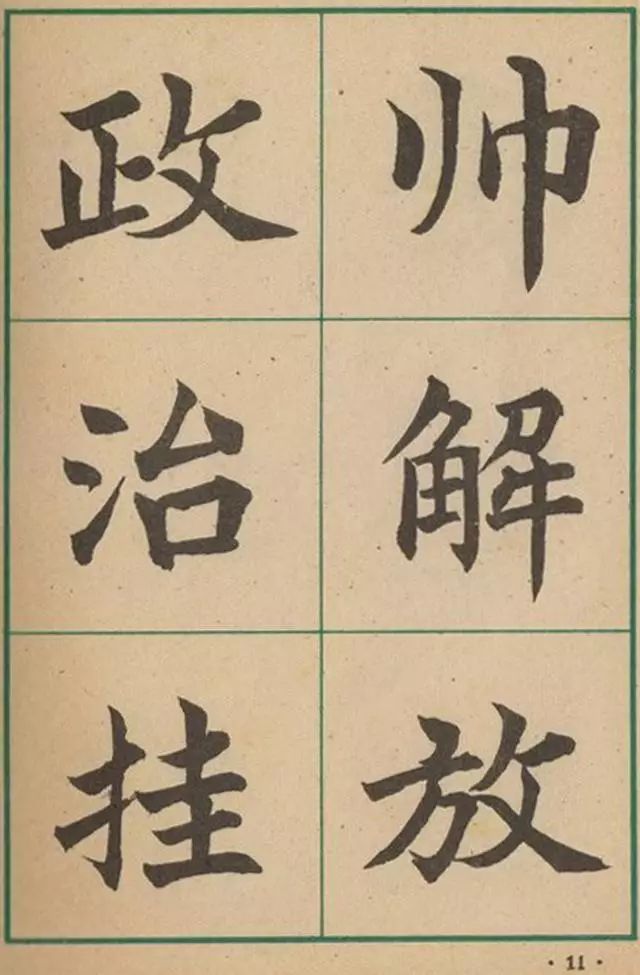 政治挂
帅解放
· 11 ·